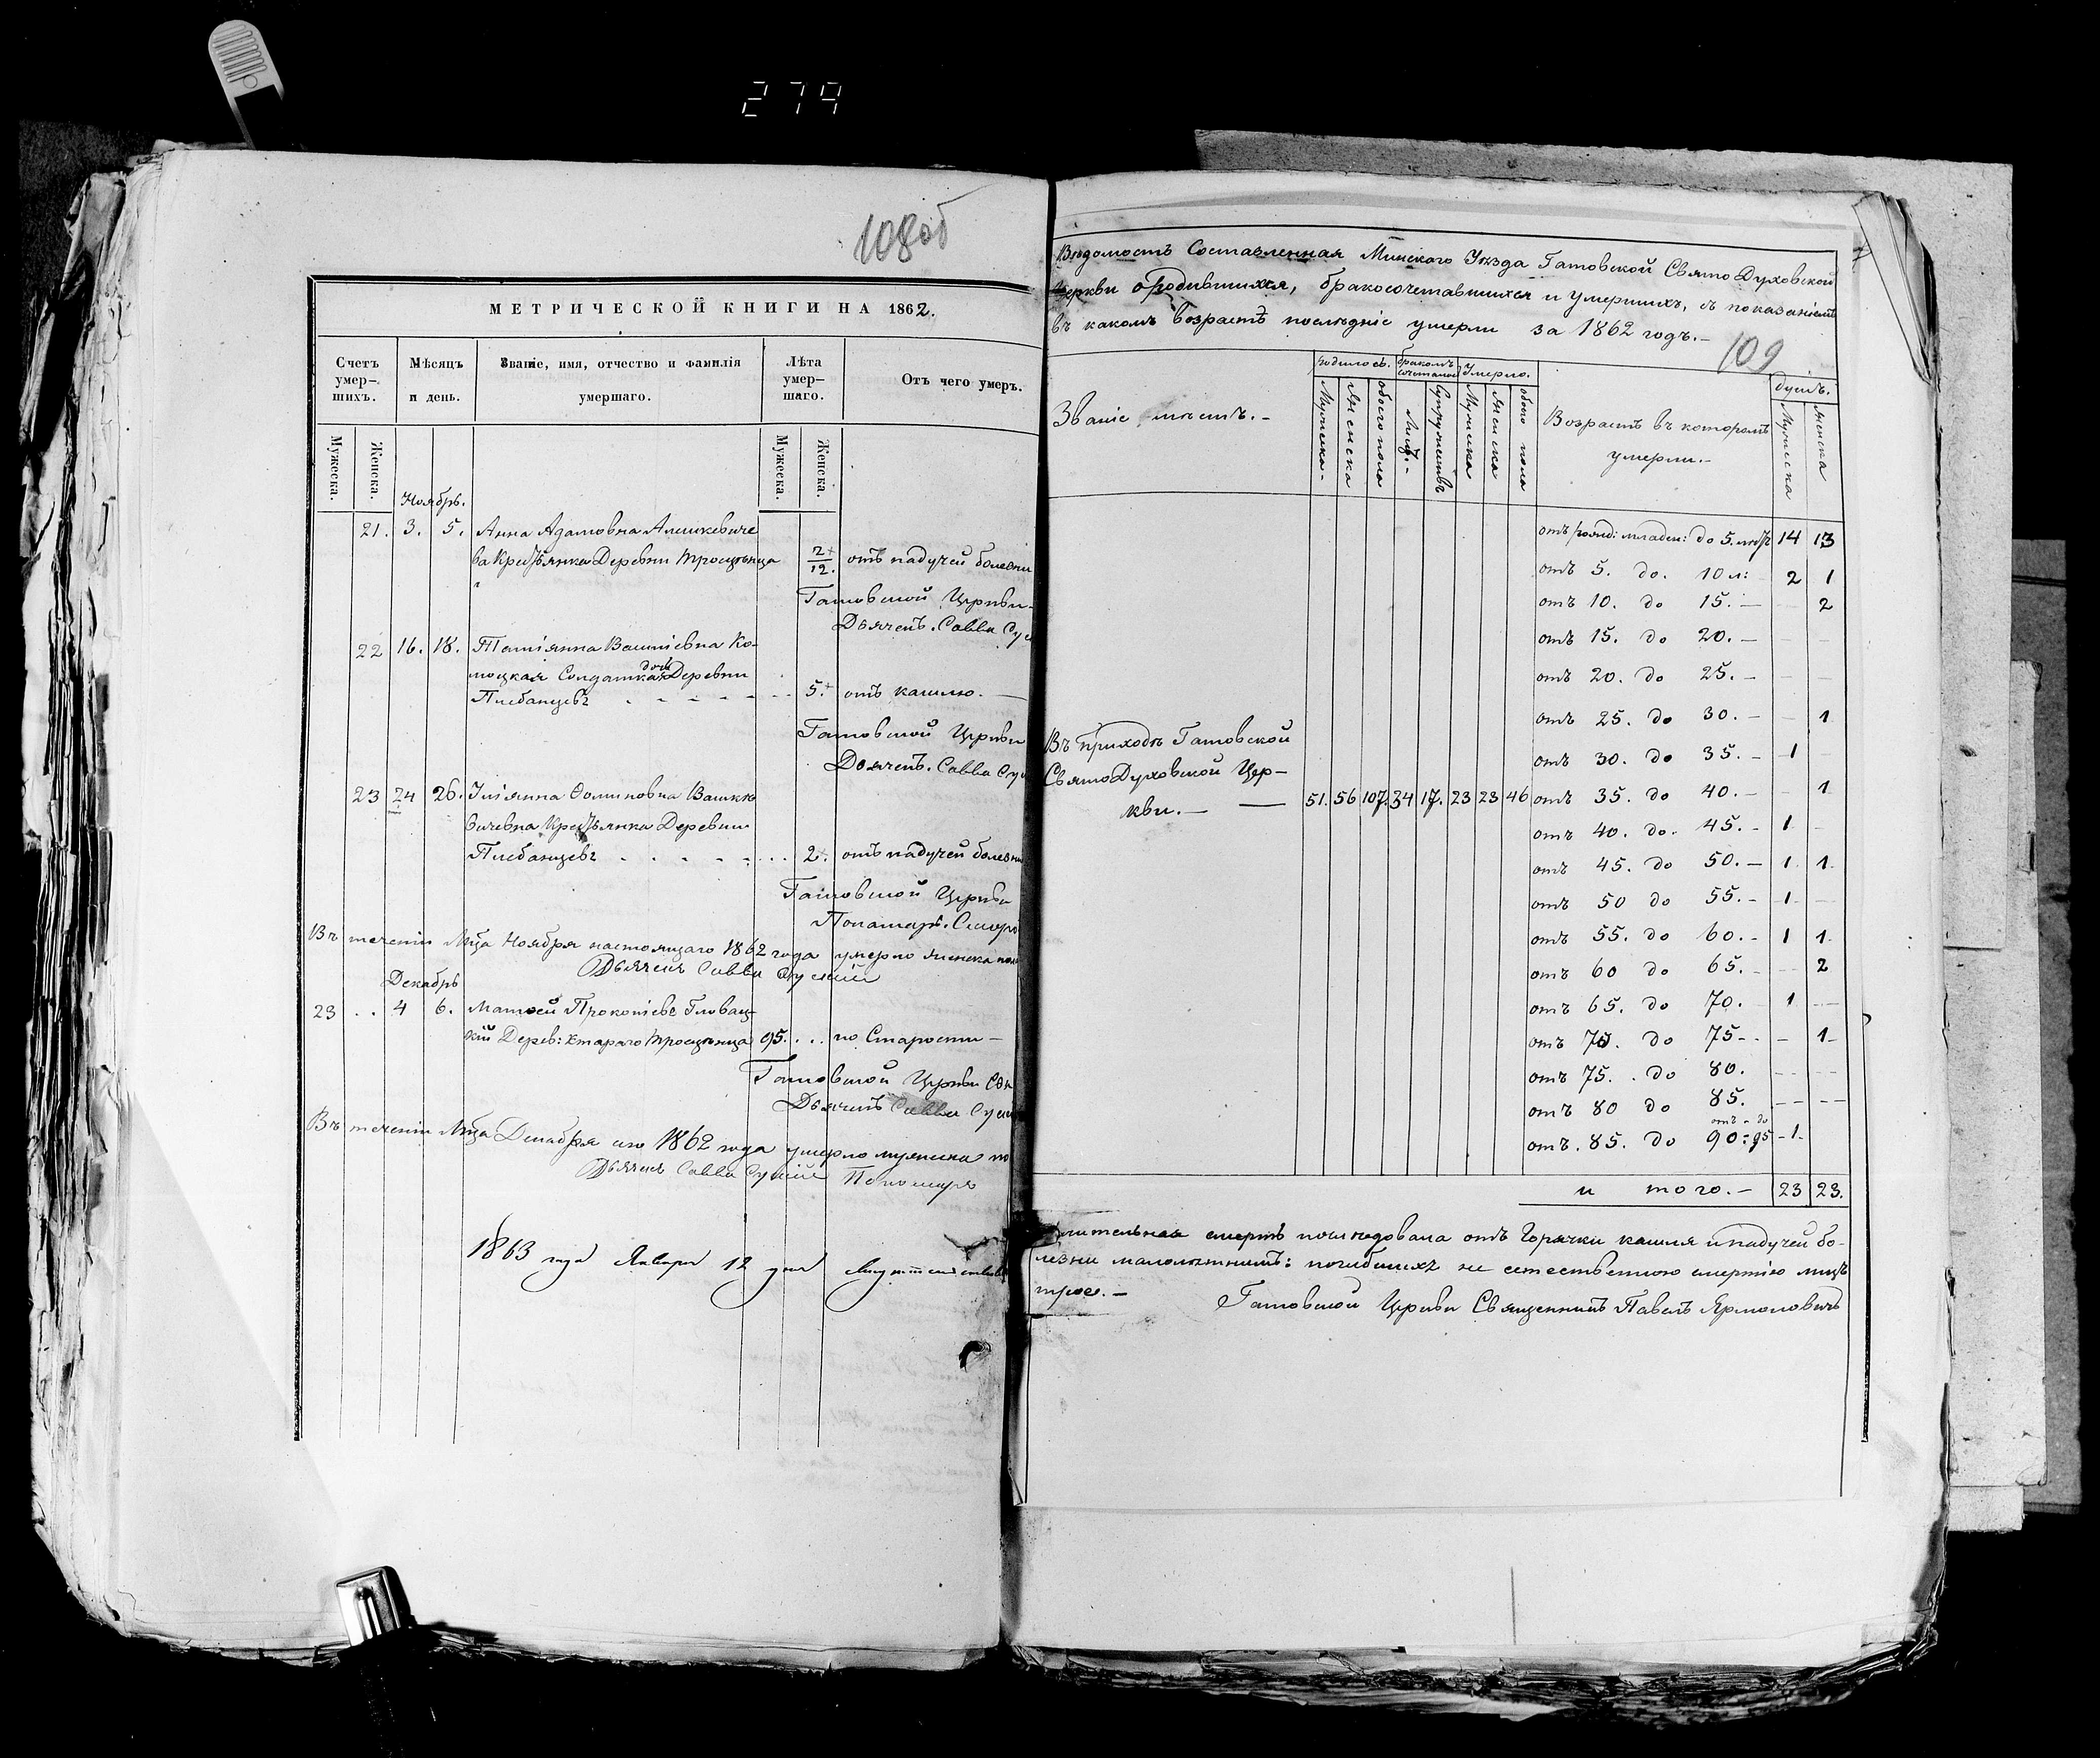 279
108об
МЕТРИЧЕСКОЙ КНИГИ НА 1862.
Счетъ умер-шихъ.
Мѣсяцъ и день.
Званіе, имя, отчество и фамилія умершаго.
Лѣта умер-шаго.
Отъ чего умеръ.
Мужеска. Женска. Мужеска. Женска.
Ноябрь.
21. 3. 5. Анна Адамовна Алишкевиче
ва Крестьянка Деревни Тростѣнца 2/12. отъ падучей болезни
Гатовской Церкви
Дьячекъ Савва
22 16. 18. Татіянна
Солдатка дочь Деревни
5. отъ кашлю.
Гатовской Церкви
Дьячекъ Савва
23 24 26. Юліянна Ѳоминовна Вашке
вичевна Крестьянка Деревни
2. отъ падучей болезни
Гатовской Церкви
Понамарь
Въ теченіи Мца Ноября настоящаго 1862 года умерло женска
Дьячекъ Савва
Декабрь
23 . . 4 6. Матѳей Прокопіевъ Гловац-
кій Дерев: Старого Тростѣнца 95. . . по Старости —
Гатовской Церкви
Дьячекъ Савва
Въ теченіи Мца Декабря сего 1862 года умерло мужеска
Дьячекъ Савва Пономарь
1863 года Января 12 дня
Вѣдомость Составленная Минского Уѣзда Гатовской Свято Духовской
Церкви о Родившихся, бракосочетавшихся и Умершихъ, съ показаніемъ
въ какомъ возрастѣ послѣдніе умерли за 1862 годъ. —
109
Званіе мѣстъ. —
Родилось.
Бракомъ сочеталось
Умерло.
Возрастъ въ которомъ умерли. —
Душъ.
Мужеска Женска обоего пола Лицъ Супружествъ Мужеска Женска обоего пола Мужеска Женска
Въ приходѣ Гатовской
Свято Духовской Цер-
кви. — 51. 56 107. 34 17. 23 23 46
отъ рожд: младен: до 5. лѣтъ 14 13
отъ 5. до. 10 л: 2 1
отъ 10. до 15. — 2
отъ 15. до 20. —
отъ 20. до 25. —
отъ 25. до 30. — 1
отъ 30. до 35. — 1
отъ 35. до 40. — 1
отъ 40. до. 45. — 1
отъ 45. до 50. — 1 1
отъ 50 до 55. — 1
отъ 55. до 60. — 1 1
отъ 60 до 65. — 2
отъ 65. до 70. 1
отъ 70. до 75 — 1
отъ 75. до 80.
отъ 80 до 85.
отъ . 85. до 90 отъ - до 95 1
и того. — 23 23.
смерть послѣдовала отъ Горячки кашля и падучей бо-
лезни малолѣтнимъ: погибшихъ не естественною смертію лицъ
трое. — Гатовской Церкви Священникъ Павелъ Ярмоловичъ